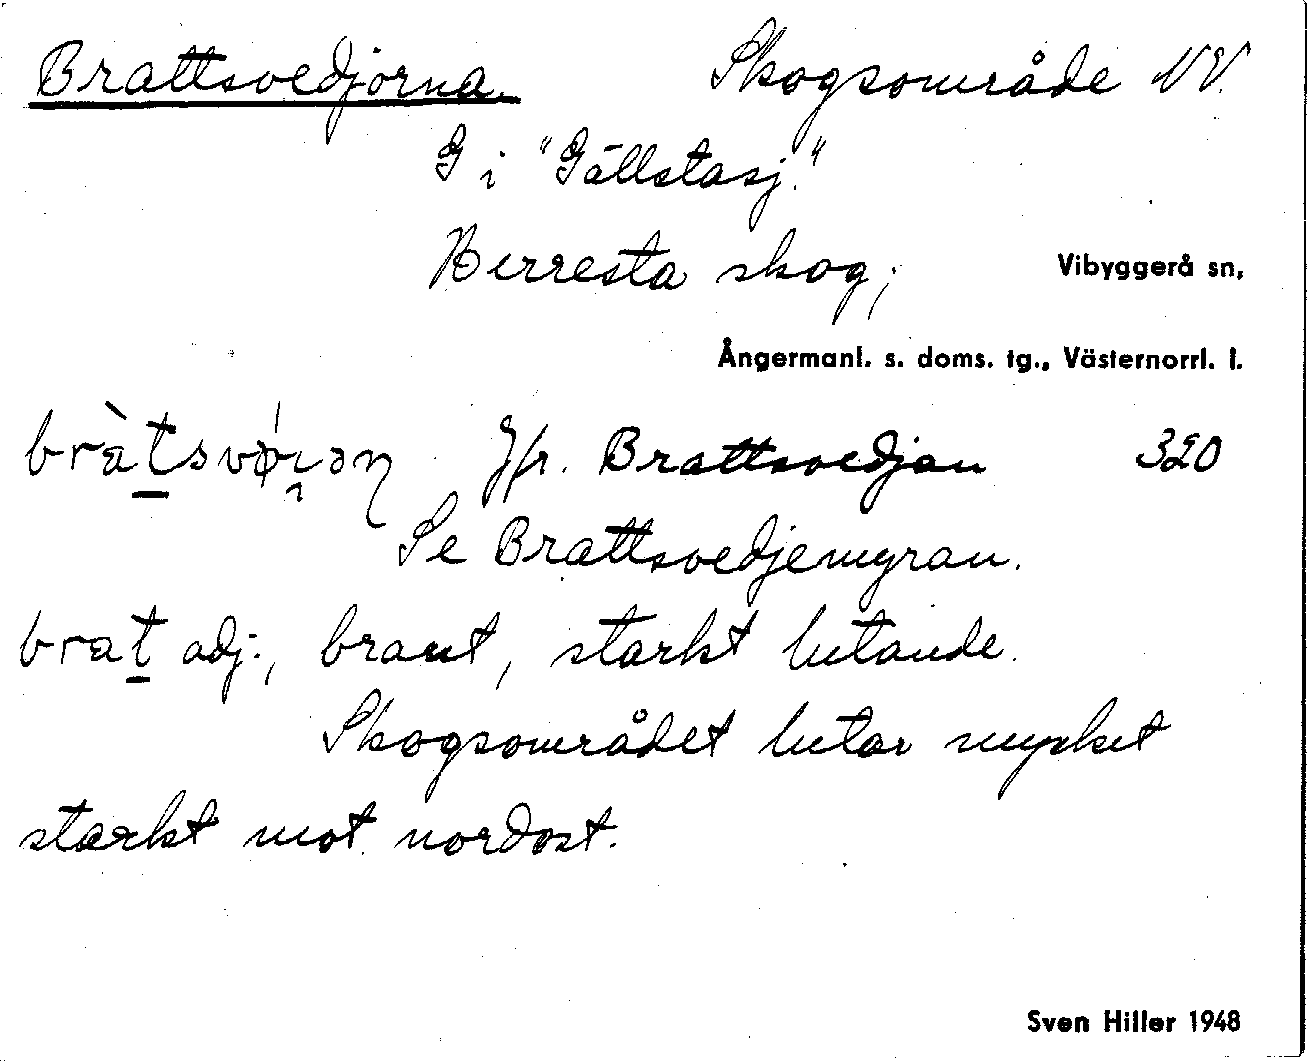 Brattsvedjorna. Skogsområde NV.
G i "Gällstasj."
Berresta skog; Vibyggerå sn,
Ångermanl. s. doms. tg., Västernorrl. l.
Jfr. Brattsvedjan 320
Se Brattsvedjemyran.
brat adj., brant, starkt lutande.
Skogsområdet lutar mycket
starkt mot nordost.
Sven Hiller 1948